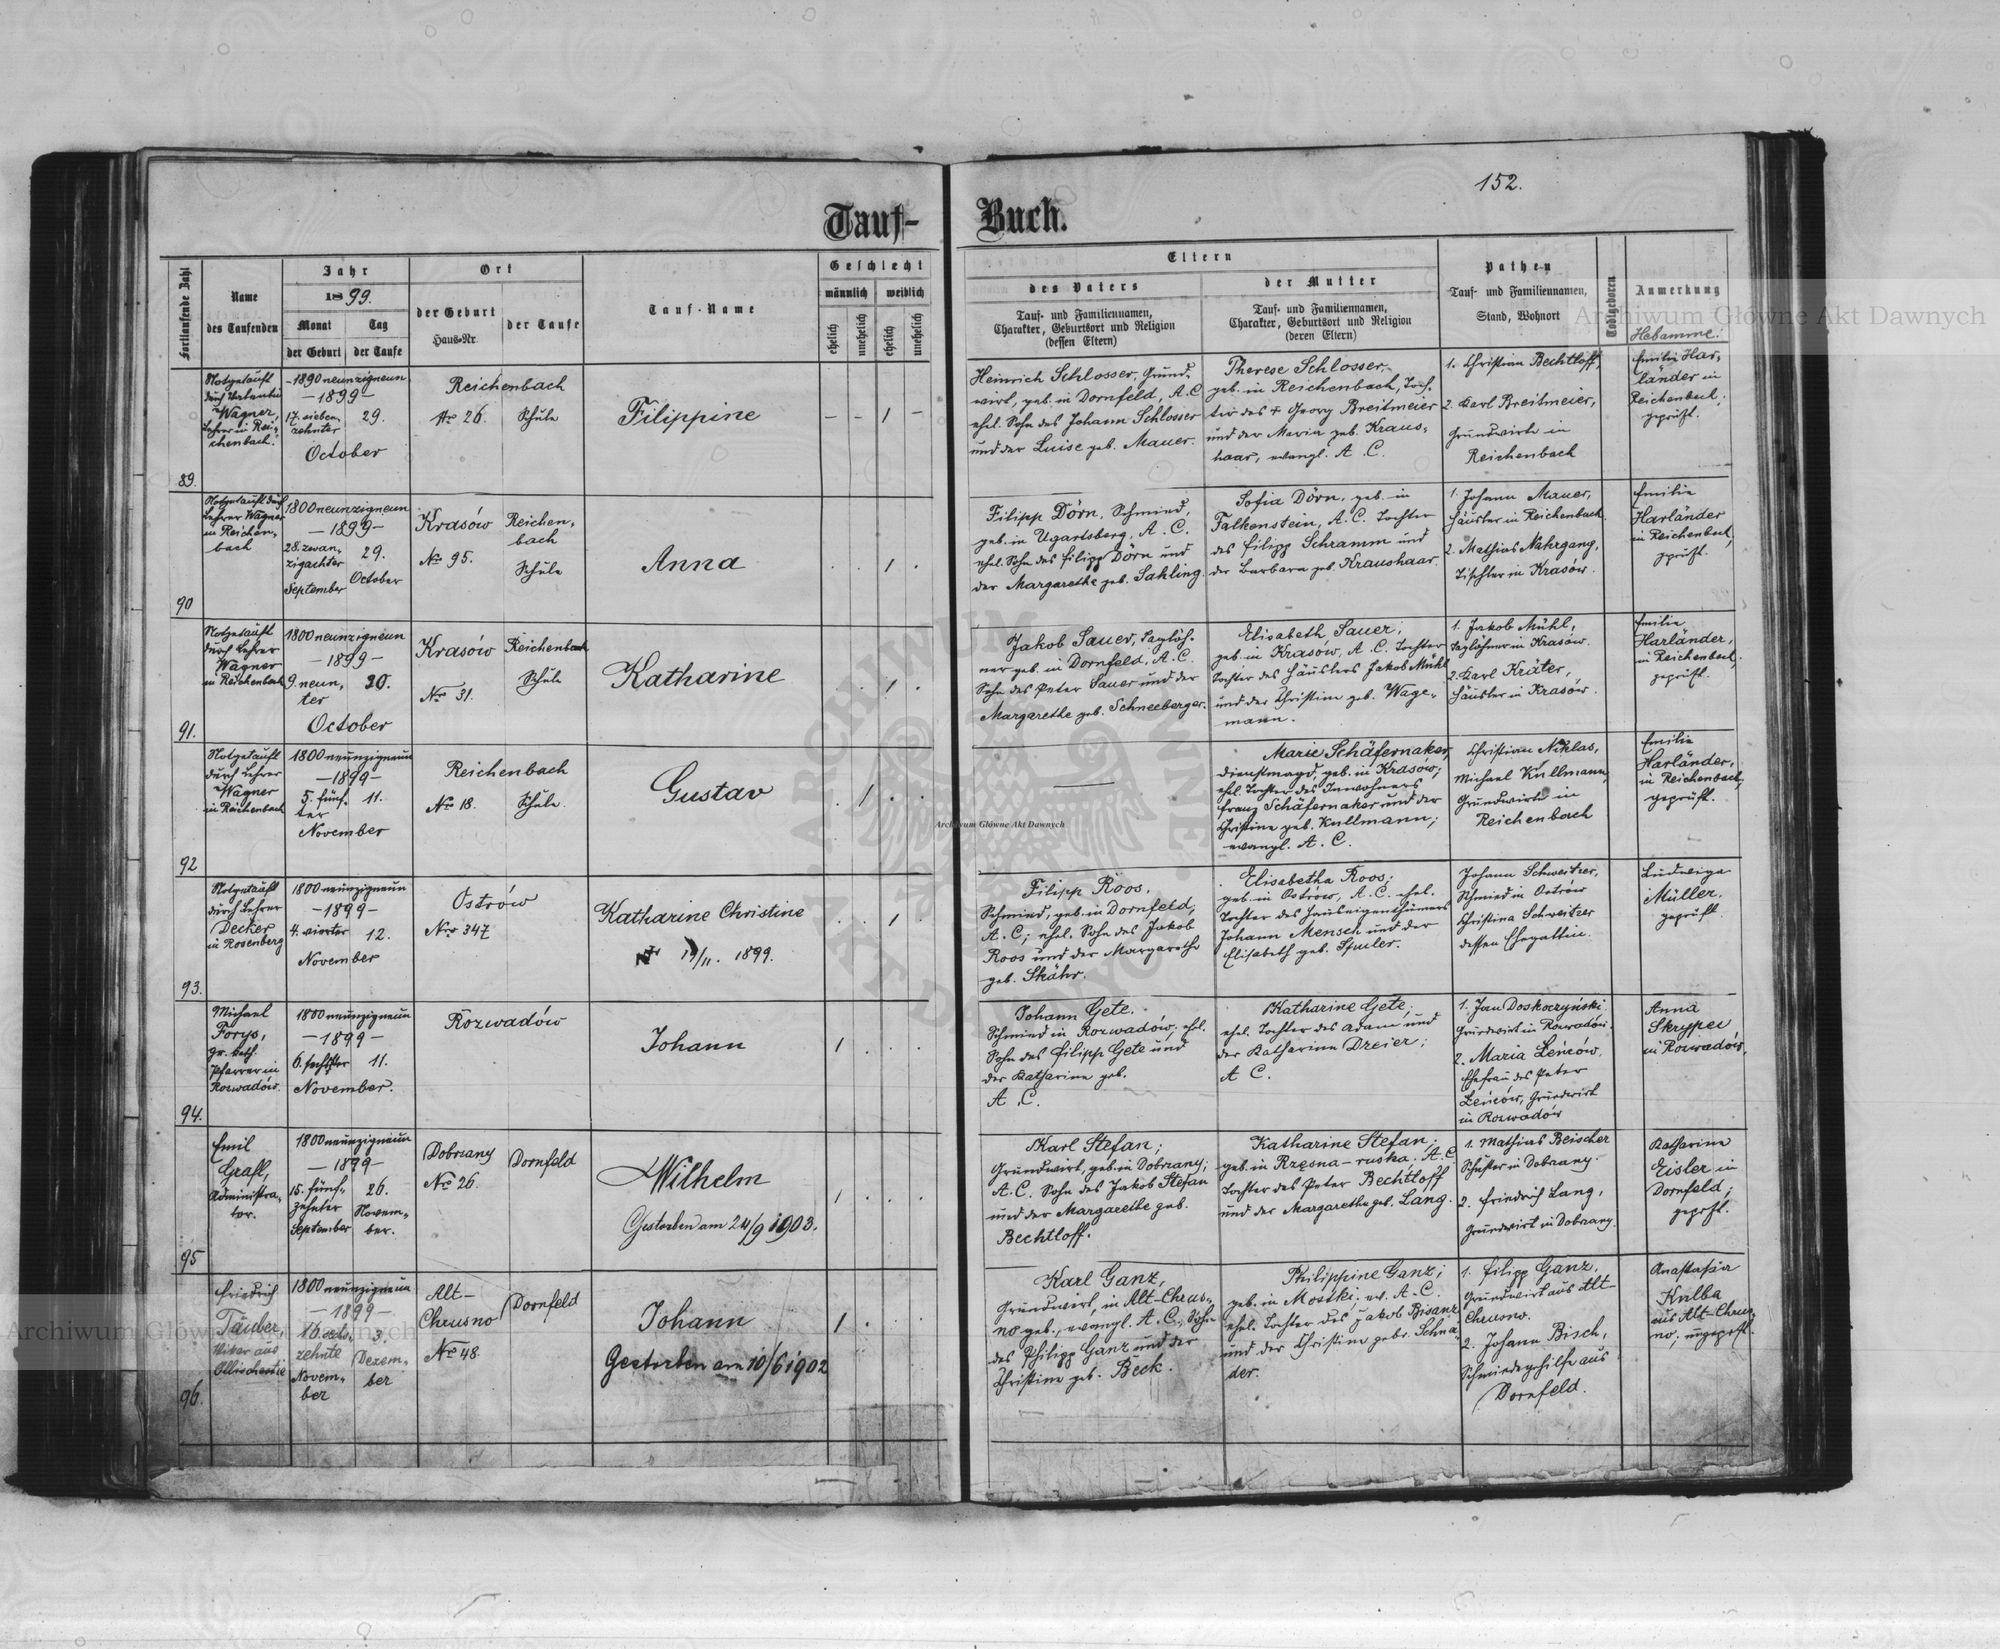 152.
Tauf-Buch.
Fortlaufende Zahl
Name
des Taufenden
Jahr
1899.
Monat
Tag
der Geburt
der Taufe
Ort
der Geburt
Haus-Nr.
der Taufe
Tauf-Name
Geschlecht
männlich
weiblich
ehelich
unehelich
ehelich
unehelich
Eltern
des Vaters
Tauf- und Familiennamen,
Charakter, Geburtsort und Religion
(dessen Eltern)
der Mutter
Tauf- und Familiennamen,
Charakter, Geburtsort und Religion
(deren Eltern)
Pathen
Tauf- und Familiennamen,
Stand, Wohnort
Todtgeboren
Anmerkung
Hebamme:
89.
Notgetauft
durch
Wagner,
Lehrer in Rei-
chenbach.
-1890 neunzigneun
-1899-
17. sieben-
zehnter
29.
October
Reichenbach
Nr 26.
Schule
Filippine
- - 1 -
Heinrich Schlosser, Grund-
wirt, geb. in Dornfeld, A.C.
ehel. Sohn des Johann Schlosser
und der Luise geb. Mauer.
Therese Schlosser,
geb. in Reichenbach, Toch-
ter des + Georg Breitmeier
und der Maria geb. Kraus-
haar, evangl. A.C.
1. Christian Bechtloff,
2. Karl Breitmeier,
Grundwirte in
Reichenbach
Emilie Har-
länder in
Reichenbach,
geprüft.
90
Notgetauft durch
Lehrer Wagner
in Reichen-
bach
1800 neunzigneun
-1899-
28. zwan-
zigachter
September
29.
October
Krasów
No 95.
Reichen-
bach
Schule
Anna
. . 1 .
Filipp Dörn, Schmied,
geb. in Ugartsberg, A.C.
ehel. Sohn des Filipp Dörn und
der Margarethe geb. Sahling.
Sofia Dörn, geb. in
Falkenstein, A.C. Tochter
des Filipp Schramm und
der Barbara geb. Kraushaar.
1. Johann Mauer,
Häusler in Reichenbach.
2. Mathias Nahrgang,
Tischler in Krasów.
Emilie
Harländer
in Reichenbach,
geprüft.
91.
Notgetauft
durch Lehrer
Wagner
in Reichenbach
1800 neunzigneun
-1899-
9. neun-
ter
30.
October
Krasów
No 31.
Reichenbach
Schule
Katharine
. 1 .
Jakob Sauer, Taglöh-
ner geb. in Dornfeld, A.C.
Sohn des Peter Sauer und der
Margarethe geb. Schneeberger.
Elisabeth Sauer;
geb. in Krasów, A.C. Tochter
Tochter des Häuslers Jakob Mühl
und der Christine geb. Wage-
mann.
1. Jakob Mühl,
Taglöhner in Krasów.
2. Karl Kräter,
Häusler in Krasów.
Emilie
Harländer,
in Reichenbach,
geprüft.
92
Notgetauft
durch Lehrer
Wagner
in Reichenbach
1800 neunzigneun
-1899-
5. fünf-
ter
11.
November
Reichenbach
No 18.
Schule
Gustav
. 1 . .
Marie Schäfernaker,
Dienstmagd, geb. in Krasów;
ehel. Tochter des Inwohners
Franz Schäfernaker und der
Christine geb. Kullmann;
evangl. A.C.
Christian Niklas,
Michael Kullmann,
Grundwirte in
Reichenbach
Emilie
Harländer,
in Reichenbach,
geprüft.
93.
Notgetauft
durch Lehrer
Decker
in Rosenberg
1800 neunzigneun
-1899-
4. vierter
12.
November
Ostrów
Nro 347
Katharine Christine
/11. 1899.
. . 1 .
Filipp Roos,
Schmied, geb. in Dornfeld,
A.C; ehel. Sohn des Jakob
Roos und der Margarethe
geb. Skähr.
Elisabetha Roos;
geb. in Ostrów, A.C. ehel.
Tochter des Hauseigenthümers
Johann Mensch und der
Elisabeth geb. Spuler.
Johann Schweitzer,
Schmied in Ostrów
Christina Schweitzer
dessen Ehegattin.
Ludwiga
Müller,
geprüft
94.
Michael
Forys,
gr. kath.
Pfarrer in
Rozwadów.
1800 neunzigneun
-1899-
6. sechster
11.
November.
Rozwadów
Johann
1 . . .
Johann Gete.
Schmied in Rozwadów, ehel.
Sohn des Filipp Gete und
der Katharina geb.
A.C.
Katharine Gete;
ehel. Tochter des Adam und
der Katharina Dreier;
A C.
1. Jan Doskoczyński
Grundwirt in Rozwadów.
2. Maria Leńców,
Ehefrau des Peter
Leńców, Grundwirt
in Rozwadów
Anna
Skrypec
in Rozwadów,
95
Emil
Grafl,
Administra-
tor.
1800 neunzigneun
-1899-
15. fünf-
zehnter
September
26.
Novem-
ber.
Dobrzany
No 26.
Dornfeld
Wilhelm
Gestorben am 24/9 1903.
1 . . .
Karl Stefan;
Grundwirt, geb. in Dobrzany;
A.C. Sohn des Jakob Stefan
und der Margarethe geb.
Bechtloff.
Katharine Stefan;
geb. in Rzęsna-ruska. A.C.
Tochter des Peter Bechtloff
und der Margarethe geb. Lang.
1. Mathias Beischer
Schuster in Dobrzany.
2. Friedrich Lang,
Grundwirt in Dobrzany.
Katharina
Eisler in
Dornfeld;
geprft.
96.
Friedrich
Täuber,
Vikar aus
1800 neunzigneun
-1899-
16. sech-
zehnte
Novem-
ber
3.
Dezem-
ber
Alt-
Chrusno
No 48.
Dornfeld
Johann
Gestorben am 10/6 1902
1 . . .
Karl Ganz,
Grundwirt, in Alt-Chrus-
no geb., evangl. A.C., Sohn
des Philipp Ganz und der
Christine geb. Beck.
Philippine Ganz;
geb. in Mostki, ev. A.C.
ehel. Tochter des Jakob Bisanz
und der Christine gebr. Schna-
der.
1. Filipp Ganz,
Grundwirt aus Alt-
Chrusno.
2. Johann Bisch,
Schmiedegehilfe aus
Dornfeld.
Anastasia
Kulba
aus Alt-Chrus-
no, ungeprft.
Archiwum Główne Akt Dawnych
Archiwum Główne Akt Dawnych
Archiwum Główne Akt Dawnych